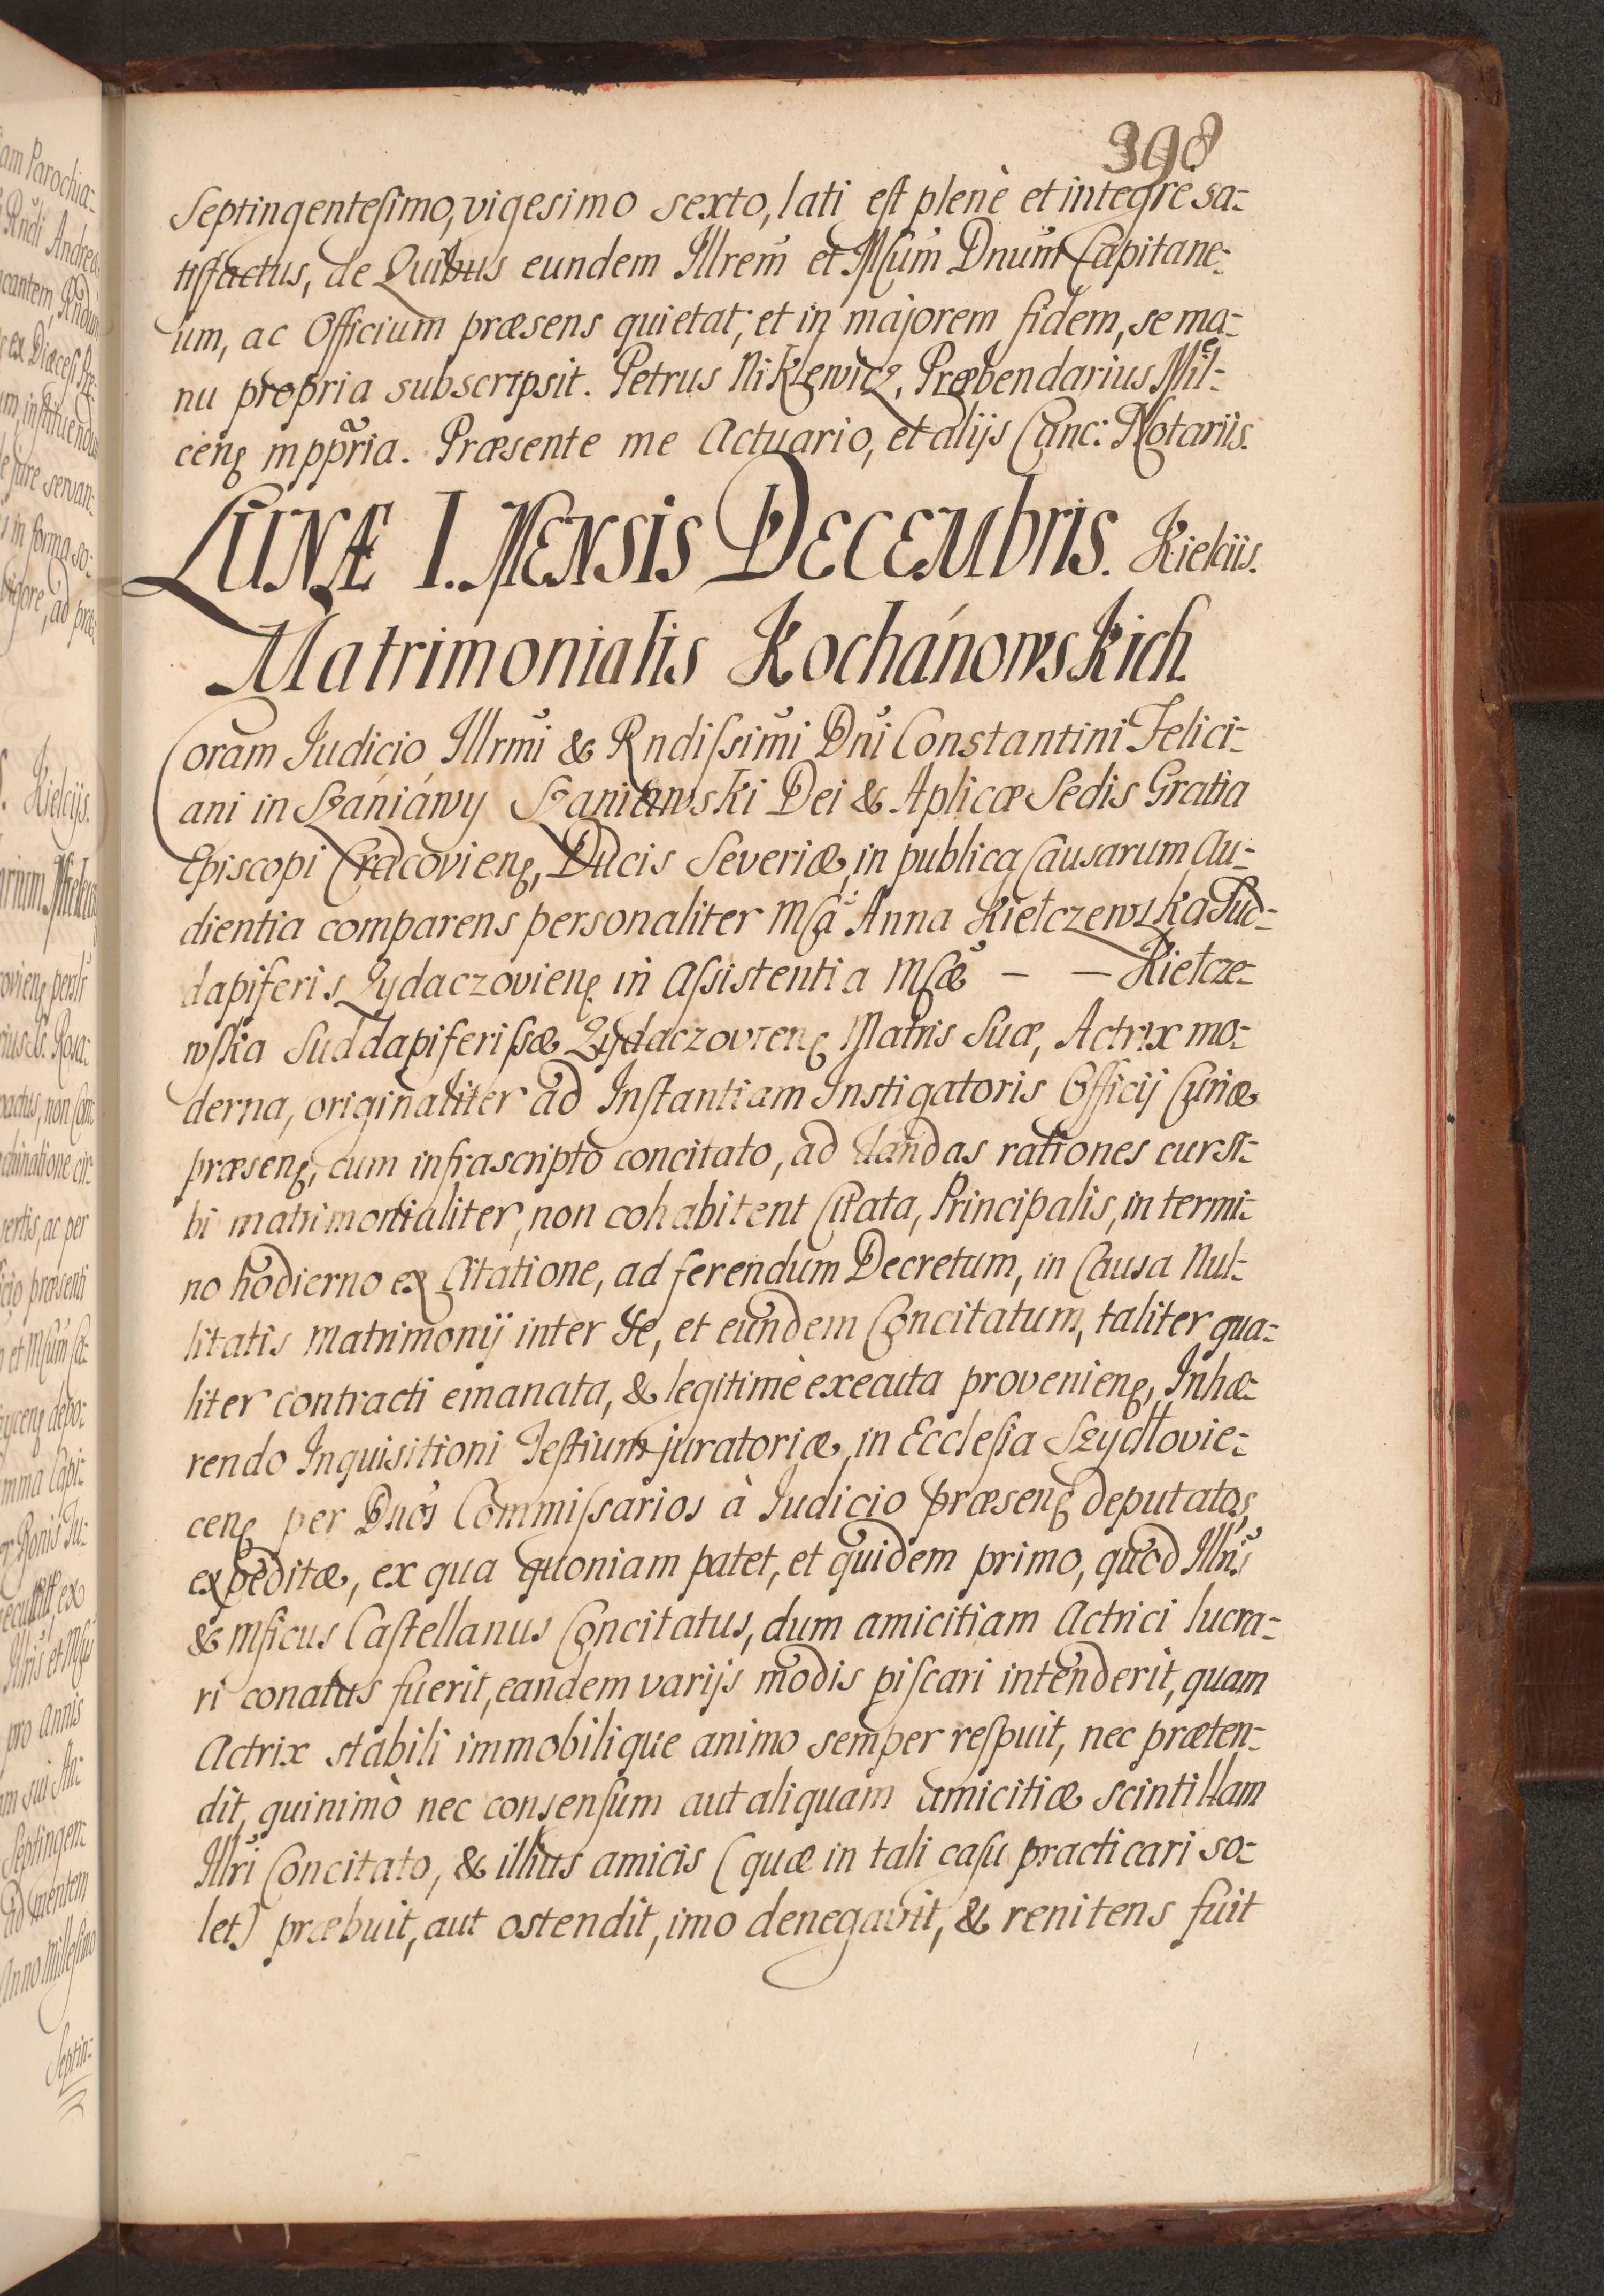 398
Septingentesimo, vigesimo sexto, lati est plenè et integrè sa-
tisfactus, de Quibus eundem Illrem et Mſum Dnum Capitane-
um, ac Officium præsens quietat; et in majorem fidem, se ma-
nu propria subscripsit. Petrus Niklewicz, Præbendarius Miel-
cenς mppria. Præsente me Actuario, et alijs Canc: Notariis.
LUNÆ I. MENSIS DECEMbris. Kielciis.
Matrimonialis Kochánowskich
Coram Iudicio Illrmi & Rndiſsimi Dni Constantini Felici-
ani in Szániáwy Szaniawski Dei & Aplicæ Sedis Gratia
Episcopi Cracovienς, Ducis Severiæ, in publica Causarum Au-
dientia comparens personaliter Mſa Anna Kiełczewska Sud-
dapiferis Zydaczovienς in Aſsistentia Mſæ – – Kiełcze-
wſka Suddapiferiſsæ Zydaczovienς Matris Suæ, Actrix mo-
derna, originaliter ad Inſtantiam Instigatoris Officij Curiæ
præsenς, cum infrascripto concitato, ad dandas rationes cur si-
bi matrimonialiter, non cohabitent Citata, Principalis, in termi-
no hodierno ex Citatione, ad ferendum Decretum, in Causa Nul-
litatis Matrimonij inter Se, et eundem Concitatum, taliter qua-
liter contracti emanata, & legitimè executa provenienς, Inhæ-
rendo Inquisitioni Teſtium juratoriæ, in Eccleſia Szydłovie-
cenς per Dnos Commiſsarios à Iudicio præsenς deputatos,
expeditæ, ex qua quoniam patet, et quidem primo, quod Illris
& Mſicus Caſtellanus Concitatus, dum amicitiam Actrici lucra-
ri conatus fuerit, eandem varijs modis piſcari intenderit, quam
Actrix stabili immobilique animo semper reſpuit, nec præten-
dit, quinimò nec conſenſum aut aliquam amicitiæ scintillam
Illri Concitato, & illius amicis (quæ in tali caſu practicari so-
let) præbuit, aut ostendit, imo denegavit, & renitens fuit